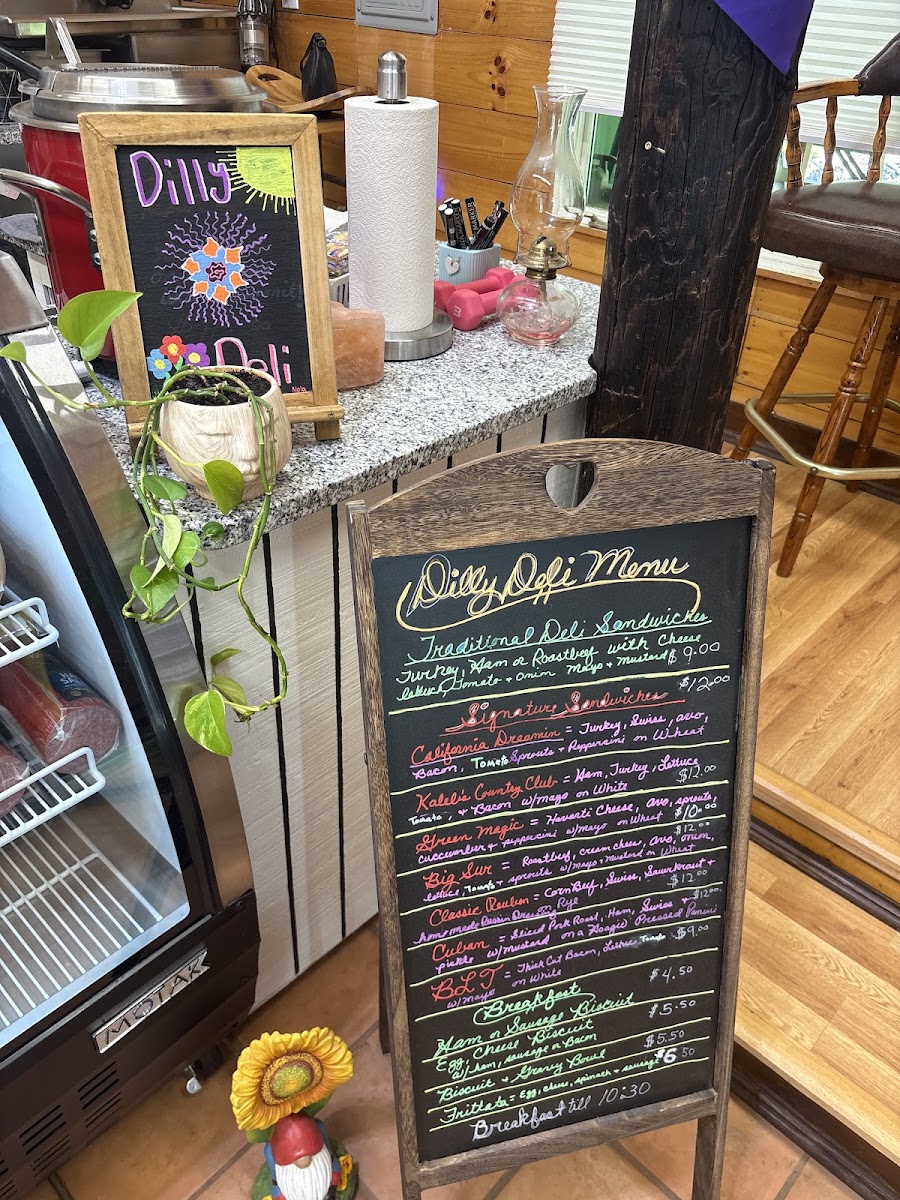 Dilly
Deli
Dilly Deli Menu
Traditional Deli Sandwiches
Turkey, Ham or Roastbeef with Cheese
lettuce, Tomato + onion Mayo + Mustard $9.00
Signature Sandwiches $12.00
California Dreamin = Turkey, Swiss, avo,
Bacon, Tomato Sprouts + Peppercini on Wheat
Kaleb's Country Club = Ham, Turkey, Lettuce $12.00
Tomato, + Bacon w/mayo on White
Green Magic = Havarti Cheese, avo, sprouts, $10.00
cuccumber + peppercini w/Mayo on Wheat $12.00
Big Sur = Roastbeef, cream chees, avo, onion,
lettuce, Tomato + sprouts w/Mayo + Mustard on Wheat
Classic Reuben = Corn Beef, Swiss, Saurkraut + $12.00
homemade Russin Dressing Rye
Cuban = Sliced Pork Roast, Ham, Swiss + $12.00
pickle w/Mustard on a Hoagie Pressed Panini
BLT = Thick Cut Bacon, Lettuce Tomato $9.00
w/Mayo on White
Breakfast
Ham or Sausage Biscuit $4.50
Egg, Cheese Biscuit $5.50
w/ ham, sausage or Bacon
Biscuit + Gravy Bowl $5.50
Frittata = Egg, chees, spinach + sausage $6.50
Breakfast till 10:30
MOTAK
MARKER
3